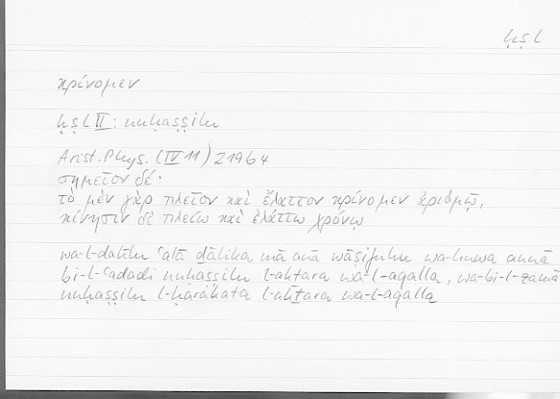 ḥṣl
κρίνομεν
ḥṣl II: nuḥaṣṣilu
Arist. Phys. (IV 11) 219b4
σημεῖον δέ·
τὸ μὲν γὰρ πλεῖον καὶ ἔλαττον κρίνομεν ἀριθμῷ,
κίνησιν δὲ πλείω καὶ ἐλάττω χρόνῳ
wa-l-dalīlu ʿalā ḏālika mā anā wāṣifuhu wa-huwa annā
bi-l-ʿadadi nuḥaṣṣilu l-akṯara wa-l-aqalla, wa-bi-l-zamā
nuḥaṣṣilu l-ḥarakata l-akṯara wa-l-aqalla